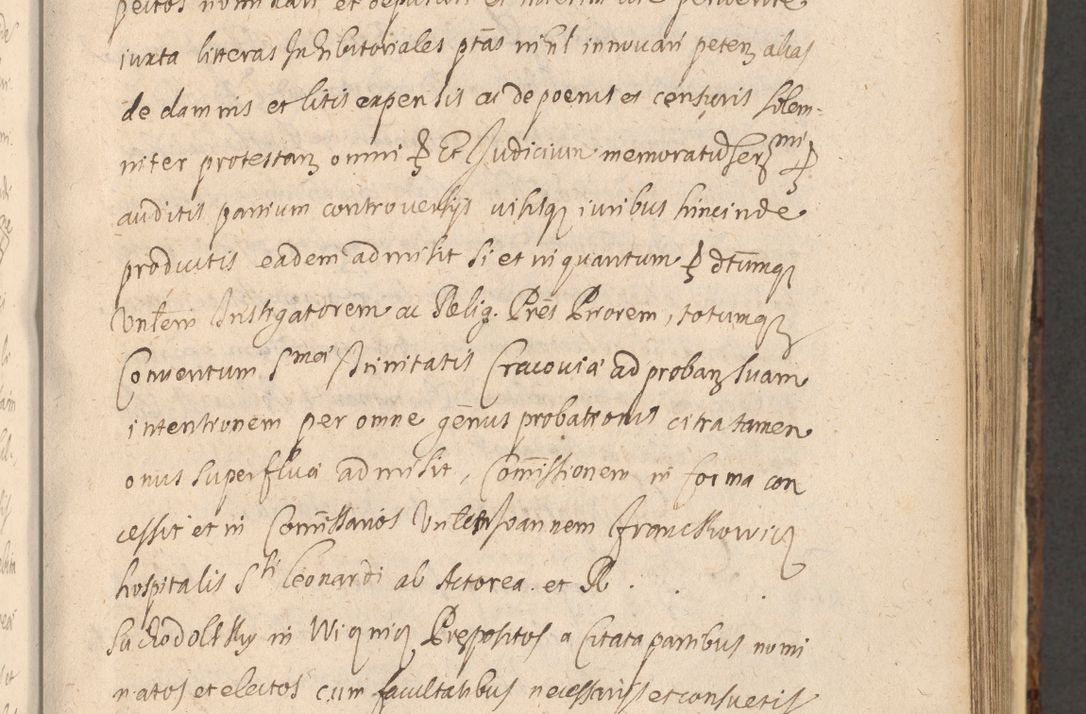 iuxta litteras Inhibitoriales ptas nihil innovari peten alias
de damnis et litis expensis ac de poenis et censuris solem-
niter protestan omni
Et Judicium memoratum
auditis partium controversijs visisq iuribus hincinde
productis eadem admisit si et in quantum dtumq
Vnlem Instigatorem ac Relig. Pres Priorem, totumq
Conventum Smae Trinitatis Cracoviae ad proban suam
intentionem per omne genus probationis citra tamen
onus superfluae admisit, Comissionem in forma con
cessit et in Comissarios Vnlem Joannem Franckowicz
hospitalis Sti Leonardi ab Actorea. et R . . .
Suchodolsky in Wiqniq Prepositos a Citata partibus nomi
natos et electos cum facultatibus necessarijs et consuetis